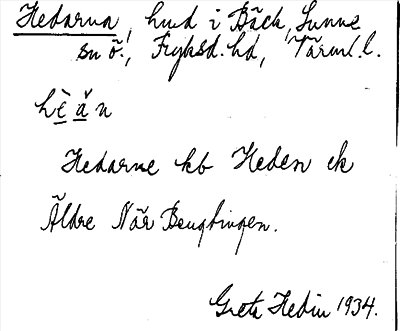 Hedarna, hmd i Bäck, Sunne
sn ö., Fryksd. hd, Värml. l.
hèǎn
Hedarne kb Heden ek
Äldre När Bengtingen.
Greta Hedin 1934.